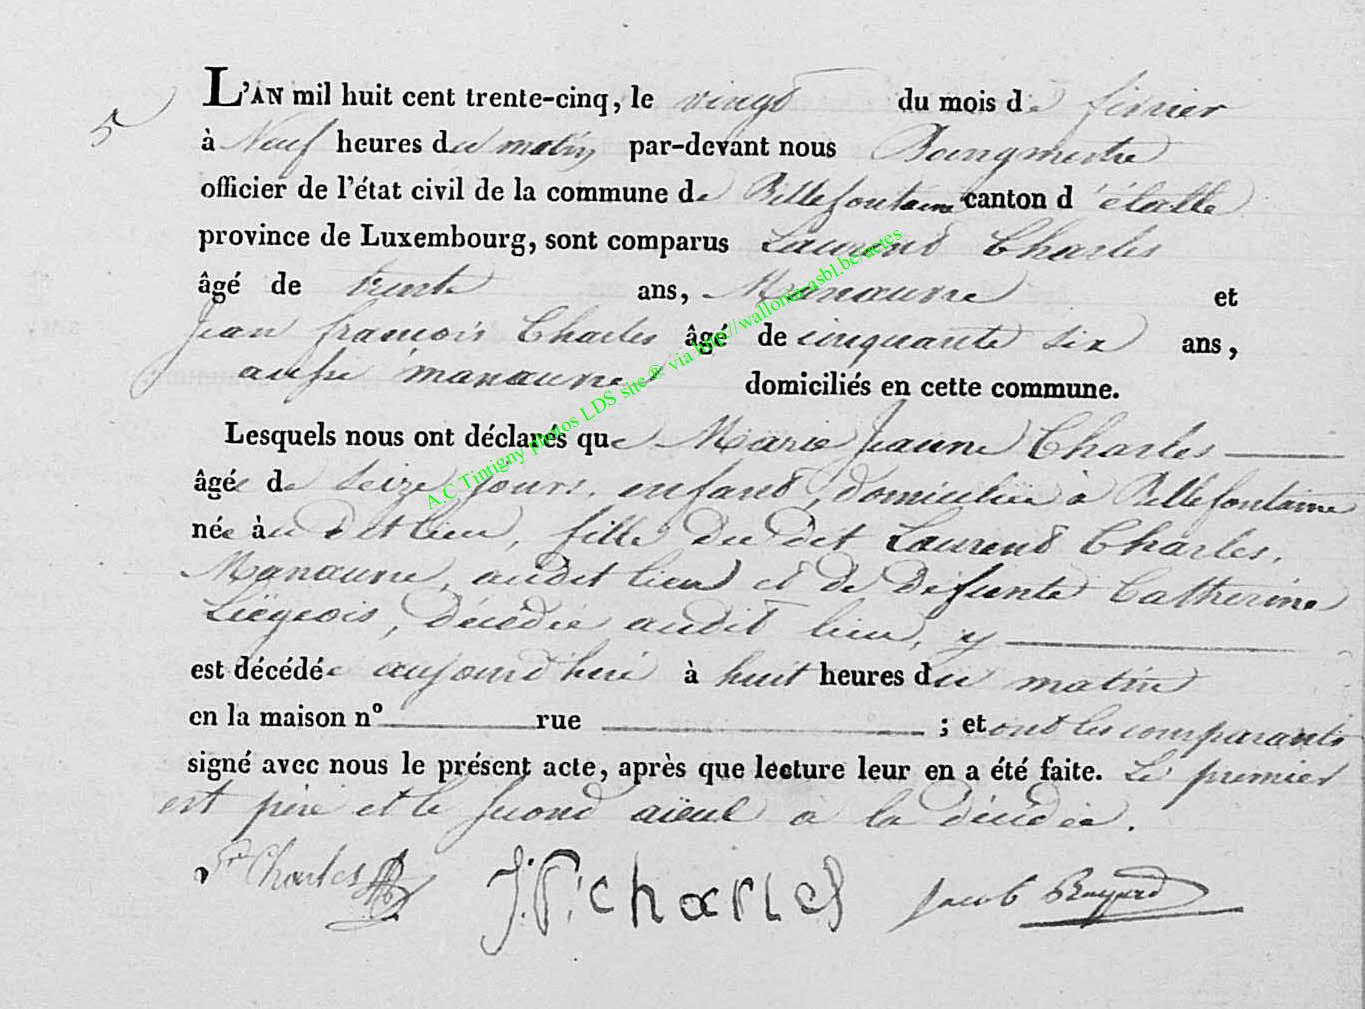 5
L'AN mil huit cent trente-cinq, le vingt du mois de février
à Neuf heures du matin par-devant nous Bourgmestre
officier de l'état civil de la commune de Bellefontaine canton d'étalle
province de Luxembourg, sont comparus Laurent Charles
âgé de trente ans, Manœuvre et
Jean françois Charles âgé de cinquante six ans,
aussi manœuvre domiciliés en cette commune.
Lesquels nous ont déclarés que Marie Jeanne Charles
âgée de seize jours, enfant, domiciliée à Bellefontaine
née au dit lieu, fille du dit Laurent Charles,
Manœuvre, audit lieu et de défunte Catherine
Liégeois, décédée audit lieu, y
est décédée aujourd'hui à huit heures du matin
en la maison nº rue ; et ont les comparants
signé avec nous le présent acte, après que lecture leur en a été faite. Le premier
est père et le second aïeul à la décédée.
Charles J.F. charles Jacob
A.C Tintigny photos LDS site ® via http://wallonia-asbl.be/actes